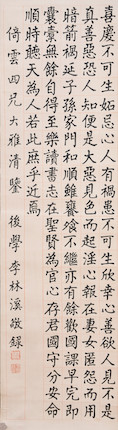 喜慶不可生妬忌心人有禍患不可生欣幸心善欲人見不是
真善惡恐人知便是大惡見色而起淫心報在妻女匿怨而用
暗箭禍延子孫家門和順雖饔飧不繼亦有餘歡國課早完即
囊橐無餘自得至樂讀書志在聖賢為官心存君國守分安命
順時聽天為人若此庶乎近焉
倚雲四兄大雅清鑒 後學李林溪敬錄